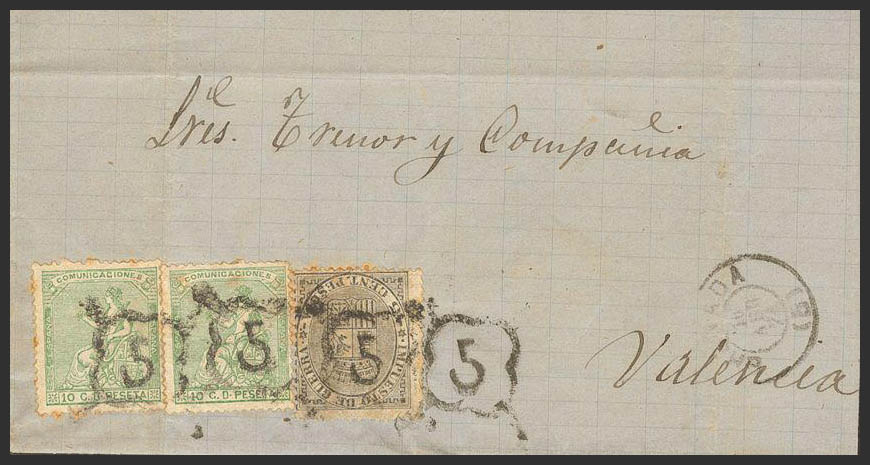 Sres. Trenor y Compañia
COMUNICACIONES
COMUNICACIONES
10 C. D. PESETA
10 C. D. PESETA
5 CENT. PESETA
IMPUESTO DE GUERRA
5
5
5
5
(6)
Valencia